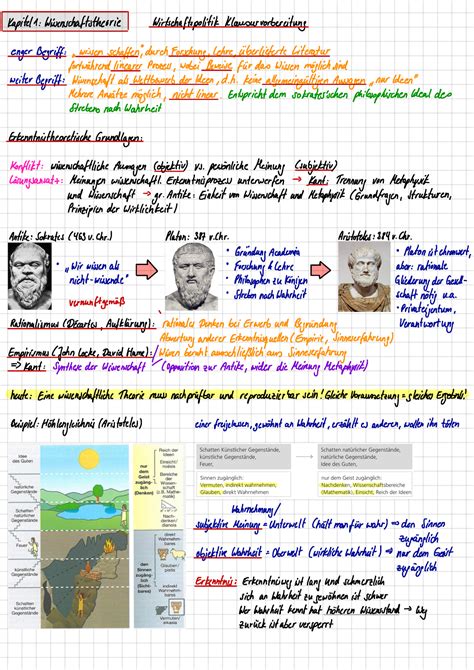 Kapitel 1: Wissenschaftstheorie Wirtschaftspolitik Klausurvorbereitung
enger Begriff: „wissen schaffen" durch Forschung, Lehre, überlieferte Literatur
fortwährend linearer Prozess, wobei Beweise für das Wissen möglich sind
weiter Begriff: Wissenschaft als Wettbewerb der Ideen, d.h. keine allgemeingültigen Aussagen „nur Ideen"
Mehrere Ansätze möglich, nicht linear. Entspricht dem sokratesischen philosophischen Ideal des
Strebens nach Wahrheit
Erkenntnistheoretische Grundlagen:
Konflikt: wissenschaftliche Aussagen (objektiv) vs. persönliche Meinung (subjektiv)
Lösungsansatz: Meinungen wissenschaftl. Erkenntnisprozess unterwerfen → Kant: Trennung von Metaphysik
und Wissenschaft → gr. Antike: Einheit von Wissenschaft und Metaphysik (Grundfragen, Strukturen,
Prinzipien der Wirklichkeit)
Antike: Sokrates (469 v. Chr.)
• „Wir wissen als
nicht-wissende"
vernunftgemäß
Platon: 387 v. Chr.
• Gründung Academia
• Forschung & Lehre
• Philosophen zu Königen
• Streben nach Wahrheit
Aristoteles: 384 v. Chr.
• Platon ist ehrenwert,
aber: rationale
Gliederung der Gesell-
schaft nötig u.a.
• Privateigentum,
Verantwortung
Rationalismus (Décartes, Aufklärung): rationales Denken bei Erwerb und Begründung
Abwertung anderer Erkenntnisquellen (Empirie, Sinneserfahrung)
Empirismus (John Locke, David Hume): Wissen beruht ausschließlich aus Sinneserfahrung
⇒ Kant: Synthese der Wissenschaft (Opposition zur Antike, wider die Meinung Metaphysik)
heute: Eine wissenschaftliche Theorie muss nachprüfbar und reproduzierbar sein! Gleiche Voraussetzung = gleiches Ergebnis!
Beispiel: Höhlengleichnis (Aristoteles) einer freigelassen, gewöhnt an Wahrheit, erzählt es anderen, wollen ihn töten
Idee des
Guten
Ideen
natürliche
Gegenstände
Schatten
natürlicher
Gegenstände
Feuer
künstliche
Gegenstände
Schatten
künstlicher
Gegenstände
nur dem
Geist
zugäng-
lich
(Denken)
den
Sinnen
zugäng-
lich
(Sicht-
bares)
Reich der
Ideen
Einsicht/
Bereiche der
Wissenschaft
(z.B. Mathe-
matik)
Nach-
denken/
direkt
Wahrnehm-
bares
Glauben/
indirekt
Wahrnehm-
bares
Vermuten/
Schatten künstlicher Gegenstände,
künstliche Gegenstände,
Feuer,
Schatten natürlicher Gegenstände,
natürliche Gegenstände,
Idee des Guten,
Sinnen zugänglich:
Vermuten, indirekt wahrnehmen,
Glauben, direkt Wahrnehmen
nur dem Geist zugänglich:
Nachdenken, Wissenschaftsbereiche
(Mathematik), Einsicht, Reich der Ideen
Wahrnehmung/
subjektive Meinung = Unterwelt (hält man für wahr) ⇒ den Sinnen
zugänglich
objektive Wahrheit = Oberwelt (wirkliche Wahrheit) ⇒ nur dem Geist
zugänglich
Erkenntnis: Erkenntnisweg ist lang und schmerzlich
sich an Wahrheit zu gewöhnen ist schwer
Wer Wahrheit kennt hat höheren Wissensstand → Weg
zurück ist aber versperrt